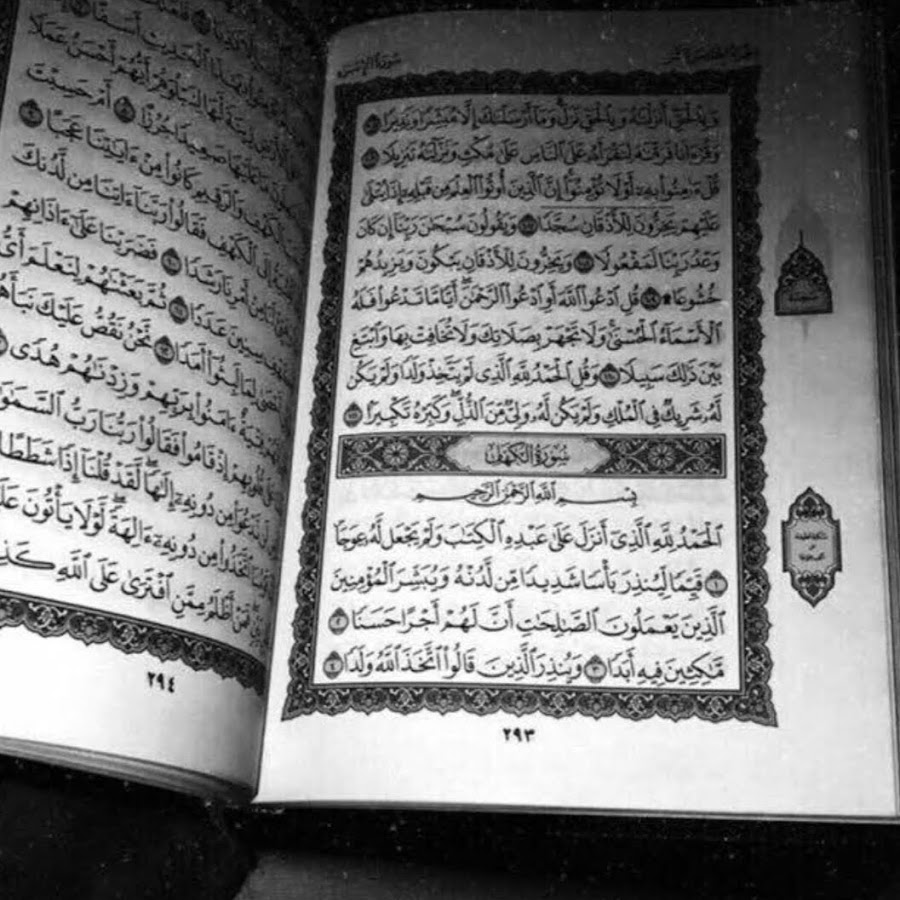 سُورَةُ الإِسْرَاءِ
وَبِٱلْحَقِّ أَنزَلْنَٰهُ وَبِٱلْحَقِّ نَزَلَ وَمَآ أَرْسَلْنَٰكَ إِلَّا مُبَشِّرًا وَنَذِيرًا ١٠٥
وَقُرْءَانًا فَرَقْنَٰهُ لِتَقْرَأَهُۥ عَلَى ٱلنَّاسِ عَلَىٰ مُكْثٍ وَنَزَّلْنَٰهُ تَنزِيلًا ١٠٦
قُلْ ءَامِنُوا۟ بِهِۦٓ أَوْ لَا تُؤْمِنُوٓا۟ إِنَّ ٱلَّذِينَ أُوتُوا۟ ٱلْعِلْمَ مِن قَبْلِهِۦٓ إِذَا يُتْلَىٰ
عَلَيْهِمْ يَخِرُّونَ لِلْأَذْقَانِ سُجَّدًا ١٠٧ وَيَقُولُونَ سُبْحَٰنَ رَبِّنَآ إِن كَانَ
وَعْدُ رَبِّنَا لَمَفْعُولًا ١٠٨ وَيَخِرُّونَ لِلْأَذْقَانِ يَبْكُونَ وَيَزِيدُهُمْ
خُشُوعًا ۩ ١٠٩ قُلِ ٱدْعُوا۟ ٱللَّهَ أَوِ ٱدْعُوا۟ ٱلرَّحْمَٰنَ أَيًّا مَّا تَدْعُوا۟ فَلَهُ
ٱلْأَسْمَآءُ ٱلْحُسْنَىٰ وَلَا تَجْهَرْ بِصَلَاتِكَ وَلَا تُخَافِتْ بِهَا وَٱبْتَغِ
بَيْنَ ذَٰلِكَ سَبِيلًا ١١٠ وَقُلِ ٱلْحَمْدُ لِلَّهِ ٱلَّذِى لَمْ يَتَّخِذْ وَلَدًا وَلَمْ يَكُن
لَّهُۥ شَرِيكٌ فِى ٱلْمُلْكِ وَلَمْ يَكُن لَّهُۥ وَلِىٌّ مِّنَ ٱلذُّلِّ وَكَبِّرْهُ تَكْبِيرًا ١١١
سُورَةُ الكَهْفِ
بِسْمِ ٱللَّهِ ٱلرَّحْمَٰنِ ٱلرَّحِيمِ
ٱلْحَمْدُ لِلَّهِ ٱلَّذِىٓ أَنزَلَ عَلَىٰ عَبْدِهِ ٱلْكِتَٰبَ وَلَمْ يَجْعَل لَّهُۥ عِوَجَا
١ قَيِّمًا لِّيُنذِرَ بَأْسًا شَدِيدًا مِّن لَّدُنْهُ وَيُبَشِّرَ ٱلْمُؤْمِنِينَ
ٱلَّذِينَ يَعْمَلُونَ ٱلصَّٰلِحَٰتِ أَنَّ لَهُمْ أَجْرًا حَسَنًا ٢
مَّٰكِثِينَ فِيهِ أَبَدًا ٣ وَيُنذِرَ ٱلَّذِينَ قَالُوا۟ ٱتَّخَذَ ٱللَّهُ وَلَدًا ٤
٢٩٣
سَجْدَة
بِهَٰذَا ٱلْحَدِيثِ أَسَفًا
لَّهَا لِنَبْلُوَهُمْ أَيُّهُمْ أَحْسَنُ عَمَلًا
مَا عَلَيْهَا صَعِيدًا جُرُزًا ٨ أَمْ حَسِبْتَ
ٱلْكَهْفِ وَٱلرَّقِيمِ كَانُوا۟ مِنْ ءَايَٰتِنَا عَجَبًا ٩
إِلَى ٱلْكَهْفِ فَقَالُوا۟ رَبَّنَآ ءَاتِنَا مِن لَّدُنكَ
مِنْ أَمْرِنَا رَشَدًا ١٠ فَضَرَبْنَا عَلَىٰٓ ءَاذَانِهِمْ
سِنِينَ عَدَدًا ١١ ثُمَّ بَعَثْنَٰهُمْ لِنَعْلَمَ أَىُّ
أَحْصَىٰ لِمَا لَبِثُوٓا۟ أَمَدًا ١٢ نَّحْنُ نَقُصُّ عَلَيْكَ نَبَأَهُم
فِتْيَةٌ ءَامَنُوا۟ بِرَبِّهِمْ وَزِدْنَٰهُمْ هُدًى
قُلُوبِهِمْ إِذْ قَامُوا۟ فَقَالُوا۟ رَبُّنَا رَبُّ ٱلسَّمَٰوَٰتِ
نَّدْعُوَا۟ مِن دُونِهِۦٓ إِلَٰهًا لَّقَدْ قُلْنَآ إِذًا شَطَطًا
ٱتَّخَذُوا۟ مِن دُونِهِۦٓ ءَالِهَةً لَّوْلَا يَأْتُونَ
فَمَنْ أَظْلَمُ مِمَّنِ ٱفْتَرَىٰ عَلَى ٱللَّهِ
٢٩٤